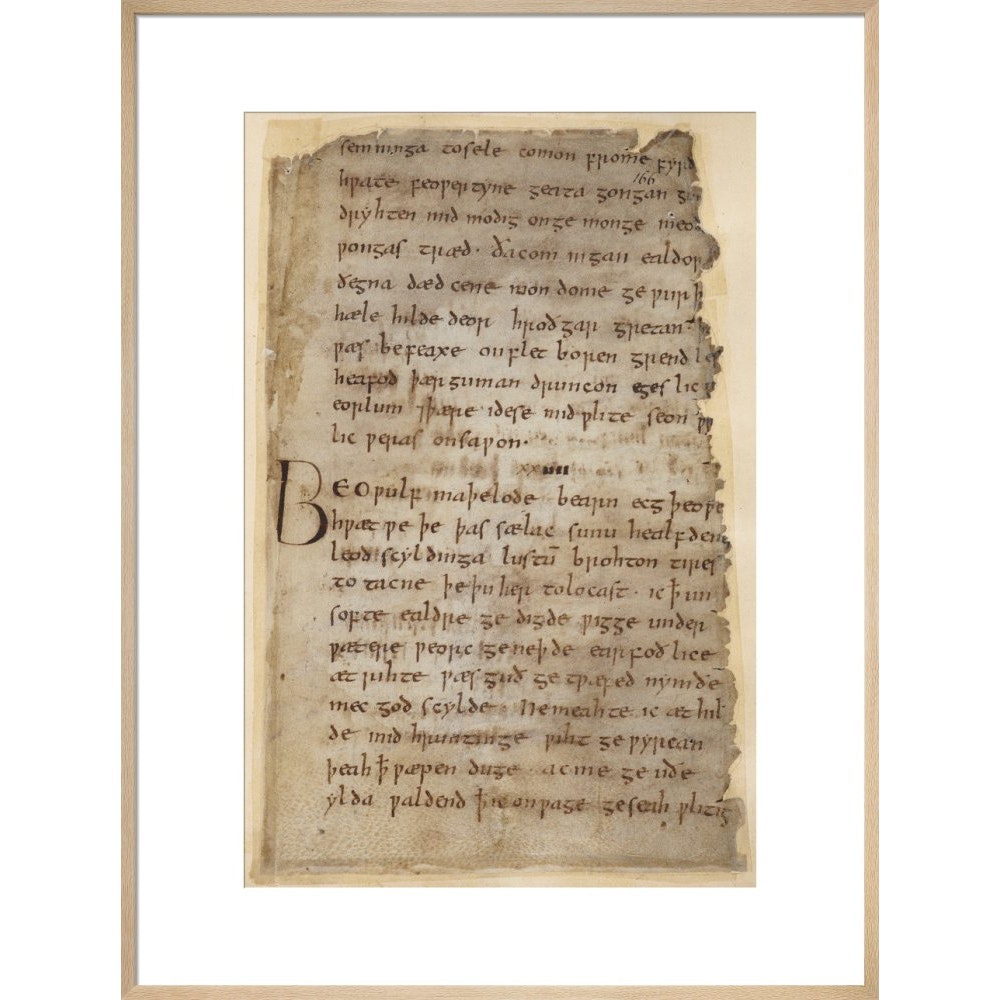 semninga tosele comon frome fyrd
166
hƿate feoƿertyne geata gongan g
dryhten mid modig onge monge meo
ƿongas træd · ða com in gan ealdor
ðegna dæd cene mon dome ge ƿurþ
hæle hilde deor hroðgar gretan
ƿæs be feaxe on flet boren grendles
heafod þær guman druncon eges lic
eorlum ⁊ þære idese mid ƿlite seon
lic ƿeras onsaƿon ·
xxiiii
BEOƿulf maþelode bearn ecg þeoƿe
hƿæt ƿe þe þas sælac sunu healfden
leod scyldinga lustū brohton tires
to tacne þe þu her tolocast · ic ꝥ un
softe ealdre ge digde ƿigge under
ƿætere ƿeorc ge neþde earfoð lice
æt rihte ƿæs guð ge tƿæfed nymðe
mec god scylde · Ne meahte ic æt hil
de mid hruntinge ƿiht ge ƿyrcan
þeah ꝥ ƿæpen duge · ac me ge uðe
ylda ƿaldend ꝥ ic on ƿage geseah ƿlitig